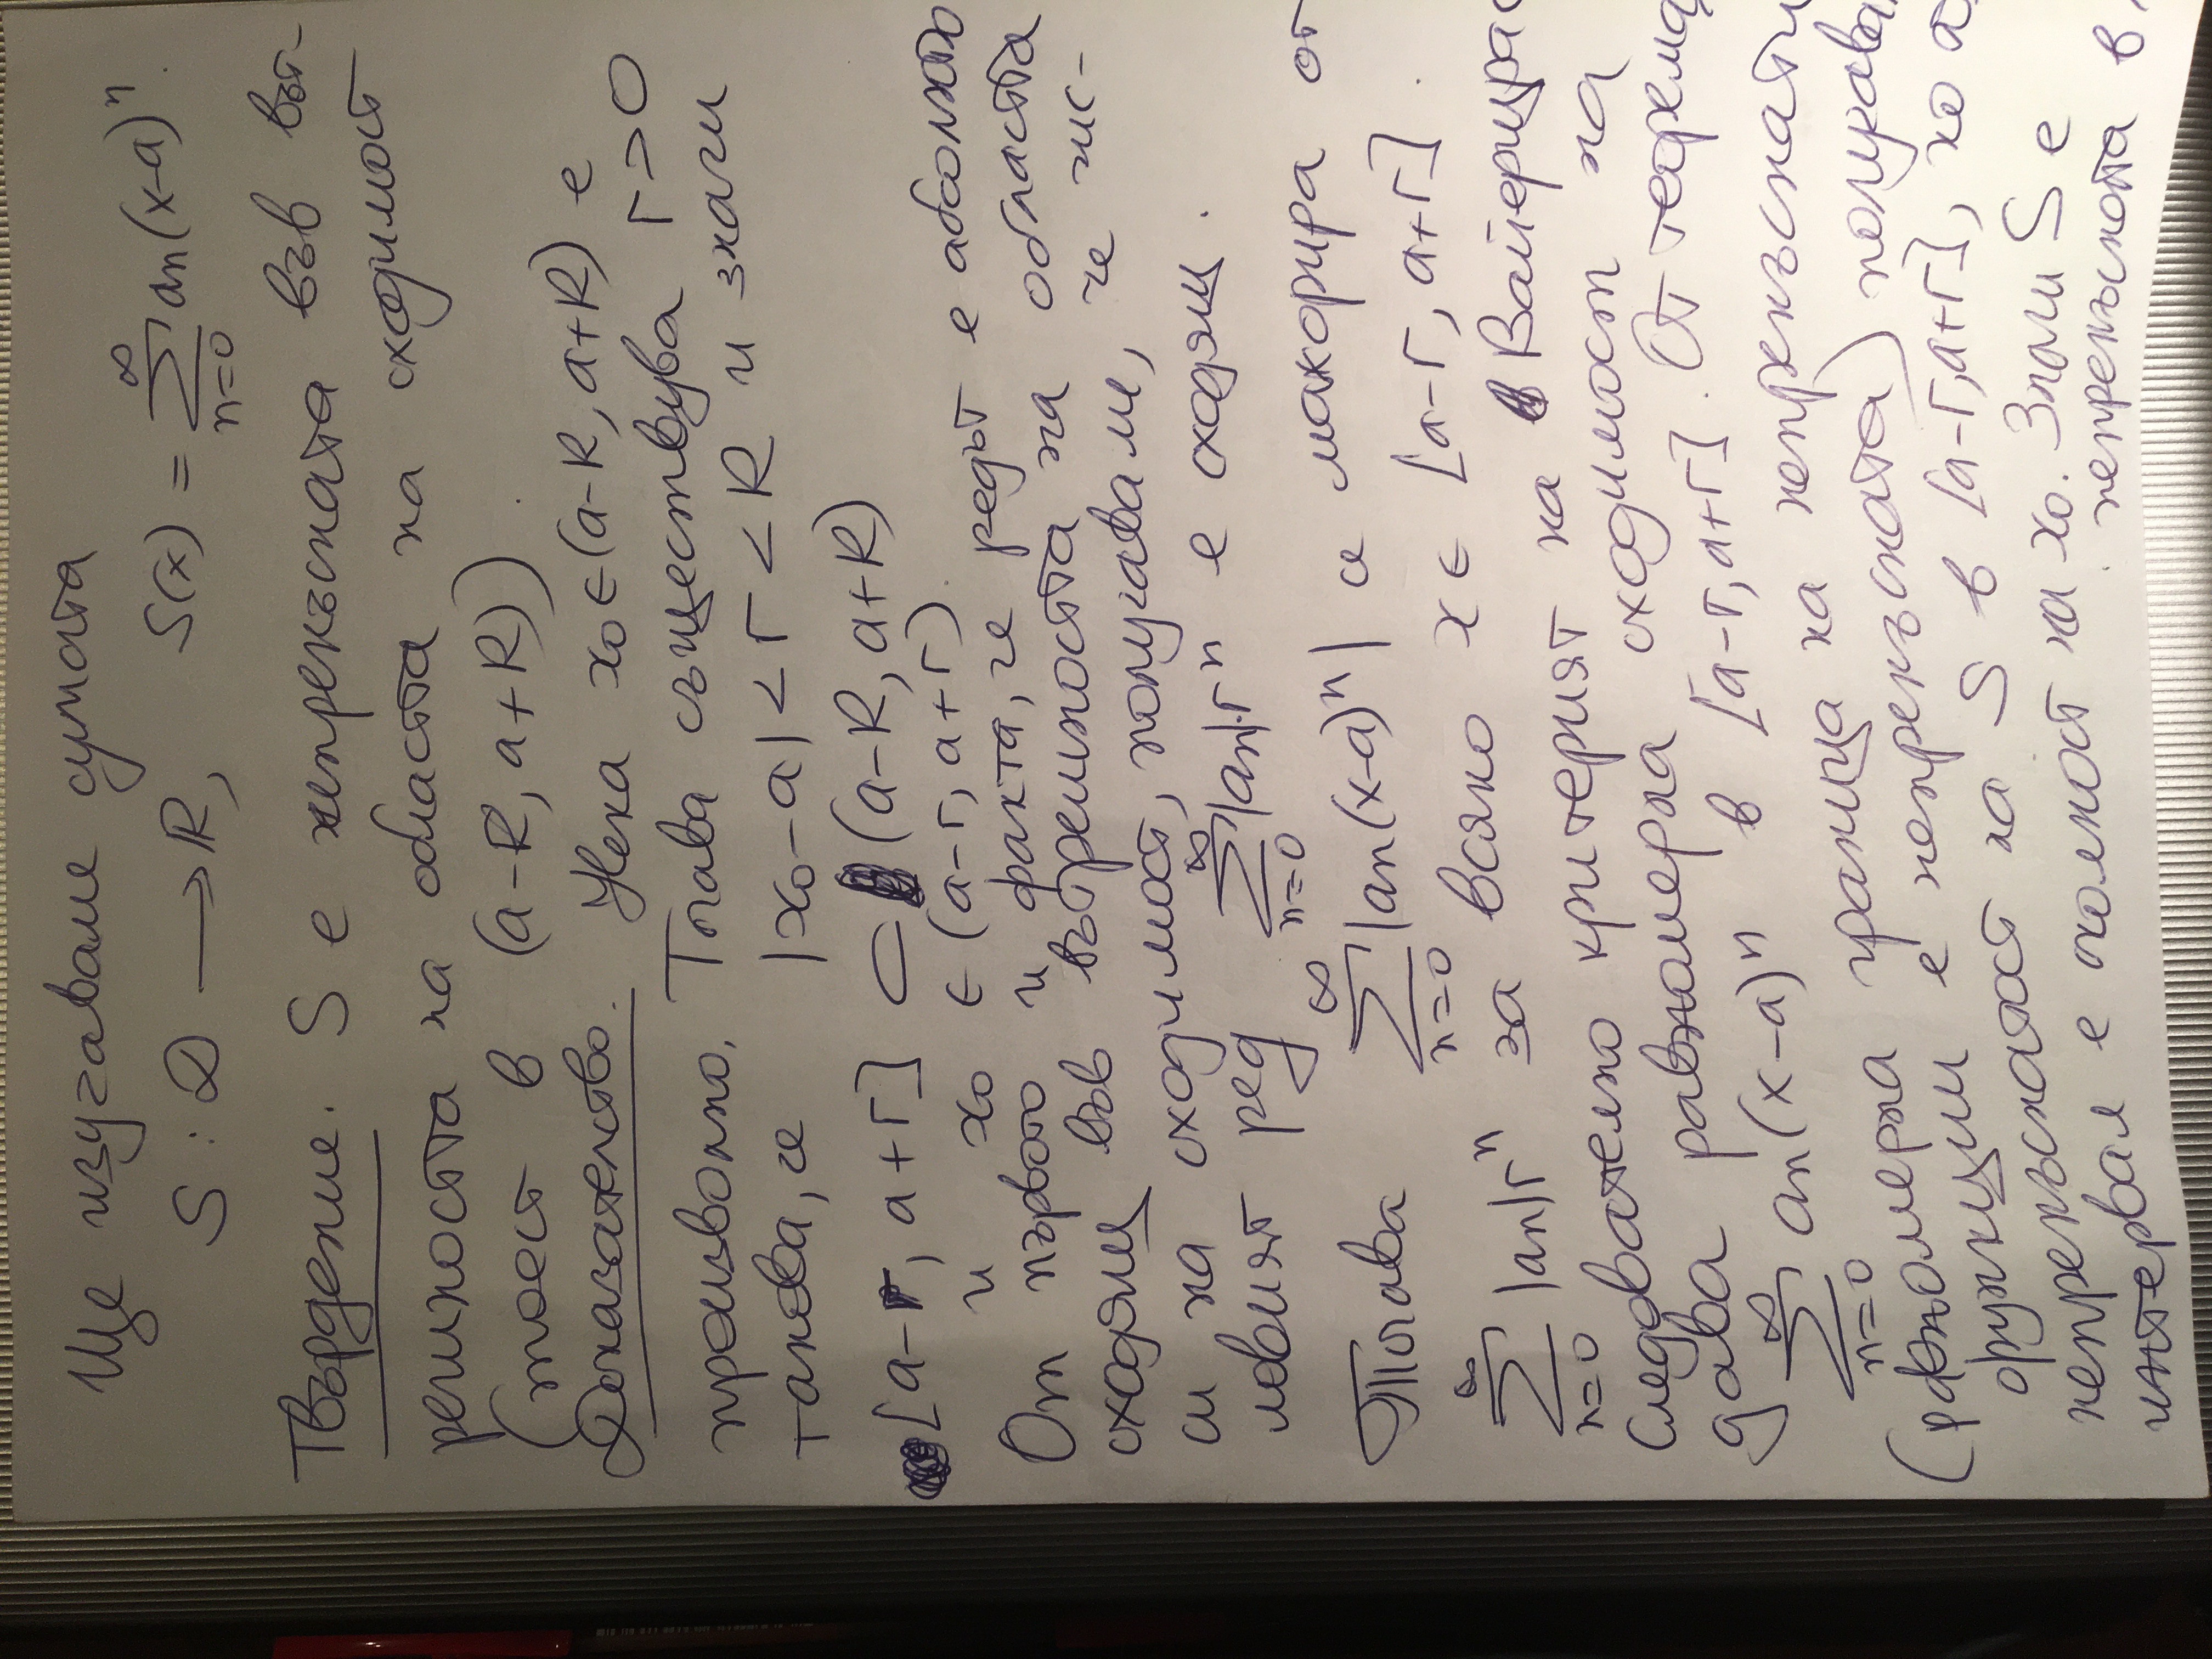 Ще изучаваме сумата
S : D → R, S(x) = ∑_{n=0}^{∞} an(x-a)^n.
Твърдение. S е непрекъсната във вът-
решността на областта на сходимост
(тоест в (a-R, a+R)).
Доказателство. Нека x0 ∈ (a-R, a+R) е
произволно. Тогава съществува r > 0
такова, че |x0-a| < r < R и значи
[a-r, a+r] ⊂ (a-R, a+R)
и x0 ∈ (a-r, a+r).
От първото и факта, че редът е абсолютно
сходящ във вътрешността на областта
си на сходимост, получаваме, че чис-
ловият ред ∑_{n=0}^{∞} |an|.r^n е сходящ.
Тогава ∑_{n=0}^{∞} |an(x-a)^n| се мажорира от
∑_{n=0}^{∞} |an|r^n за всяко x ∈ [a-r, a+r].
Следователно критерият на Вайерщрас
дава равномерна сходимост на
∑_{n=0}^{∞} an(x-a)^n в [a-r, a+r]. От теорема
(равномерна граница на непрекъснати
функции е непрекъсната) получава
непрекъснатост на S в [a-r, a+r], но
интервал е околност на x0. Значи S е
непрекъсната в